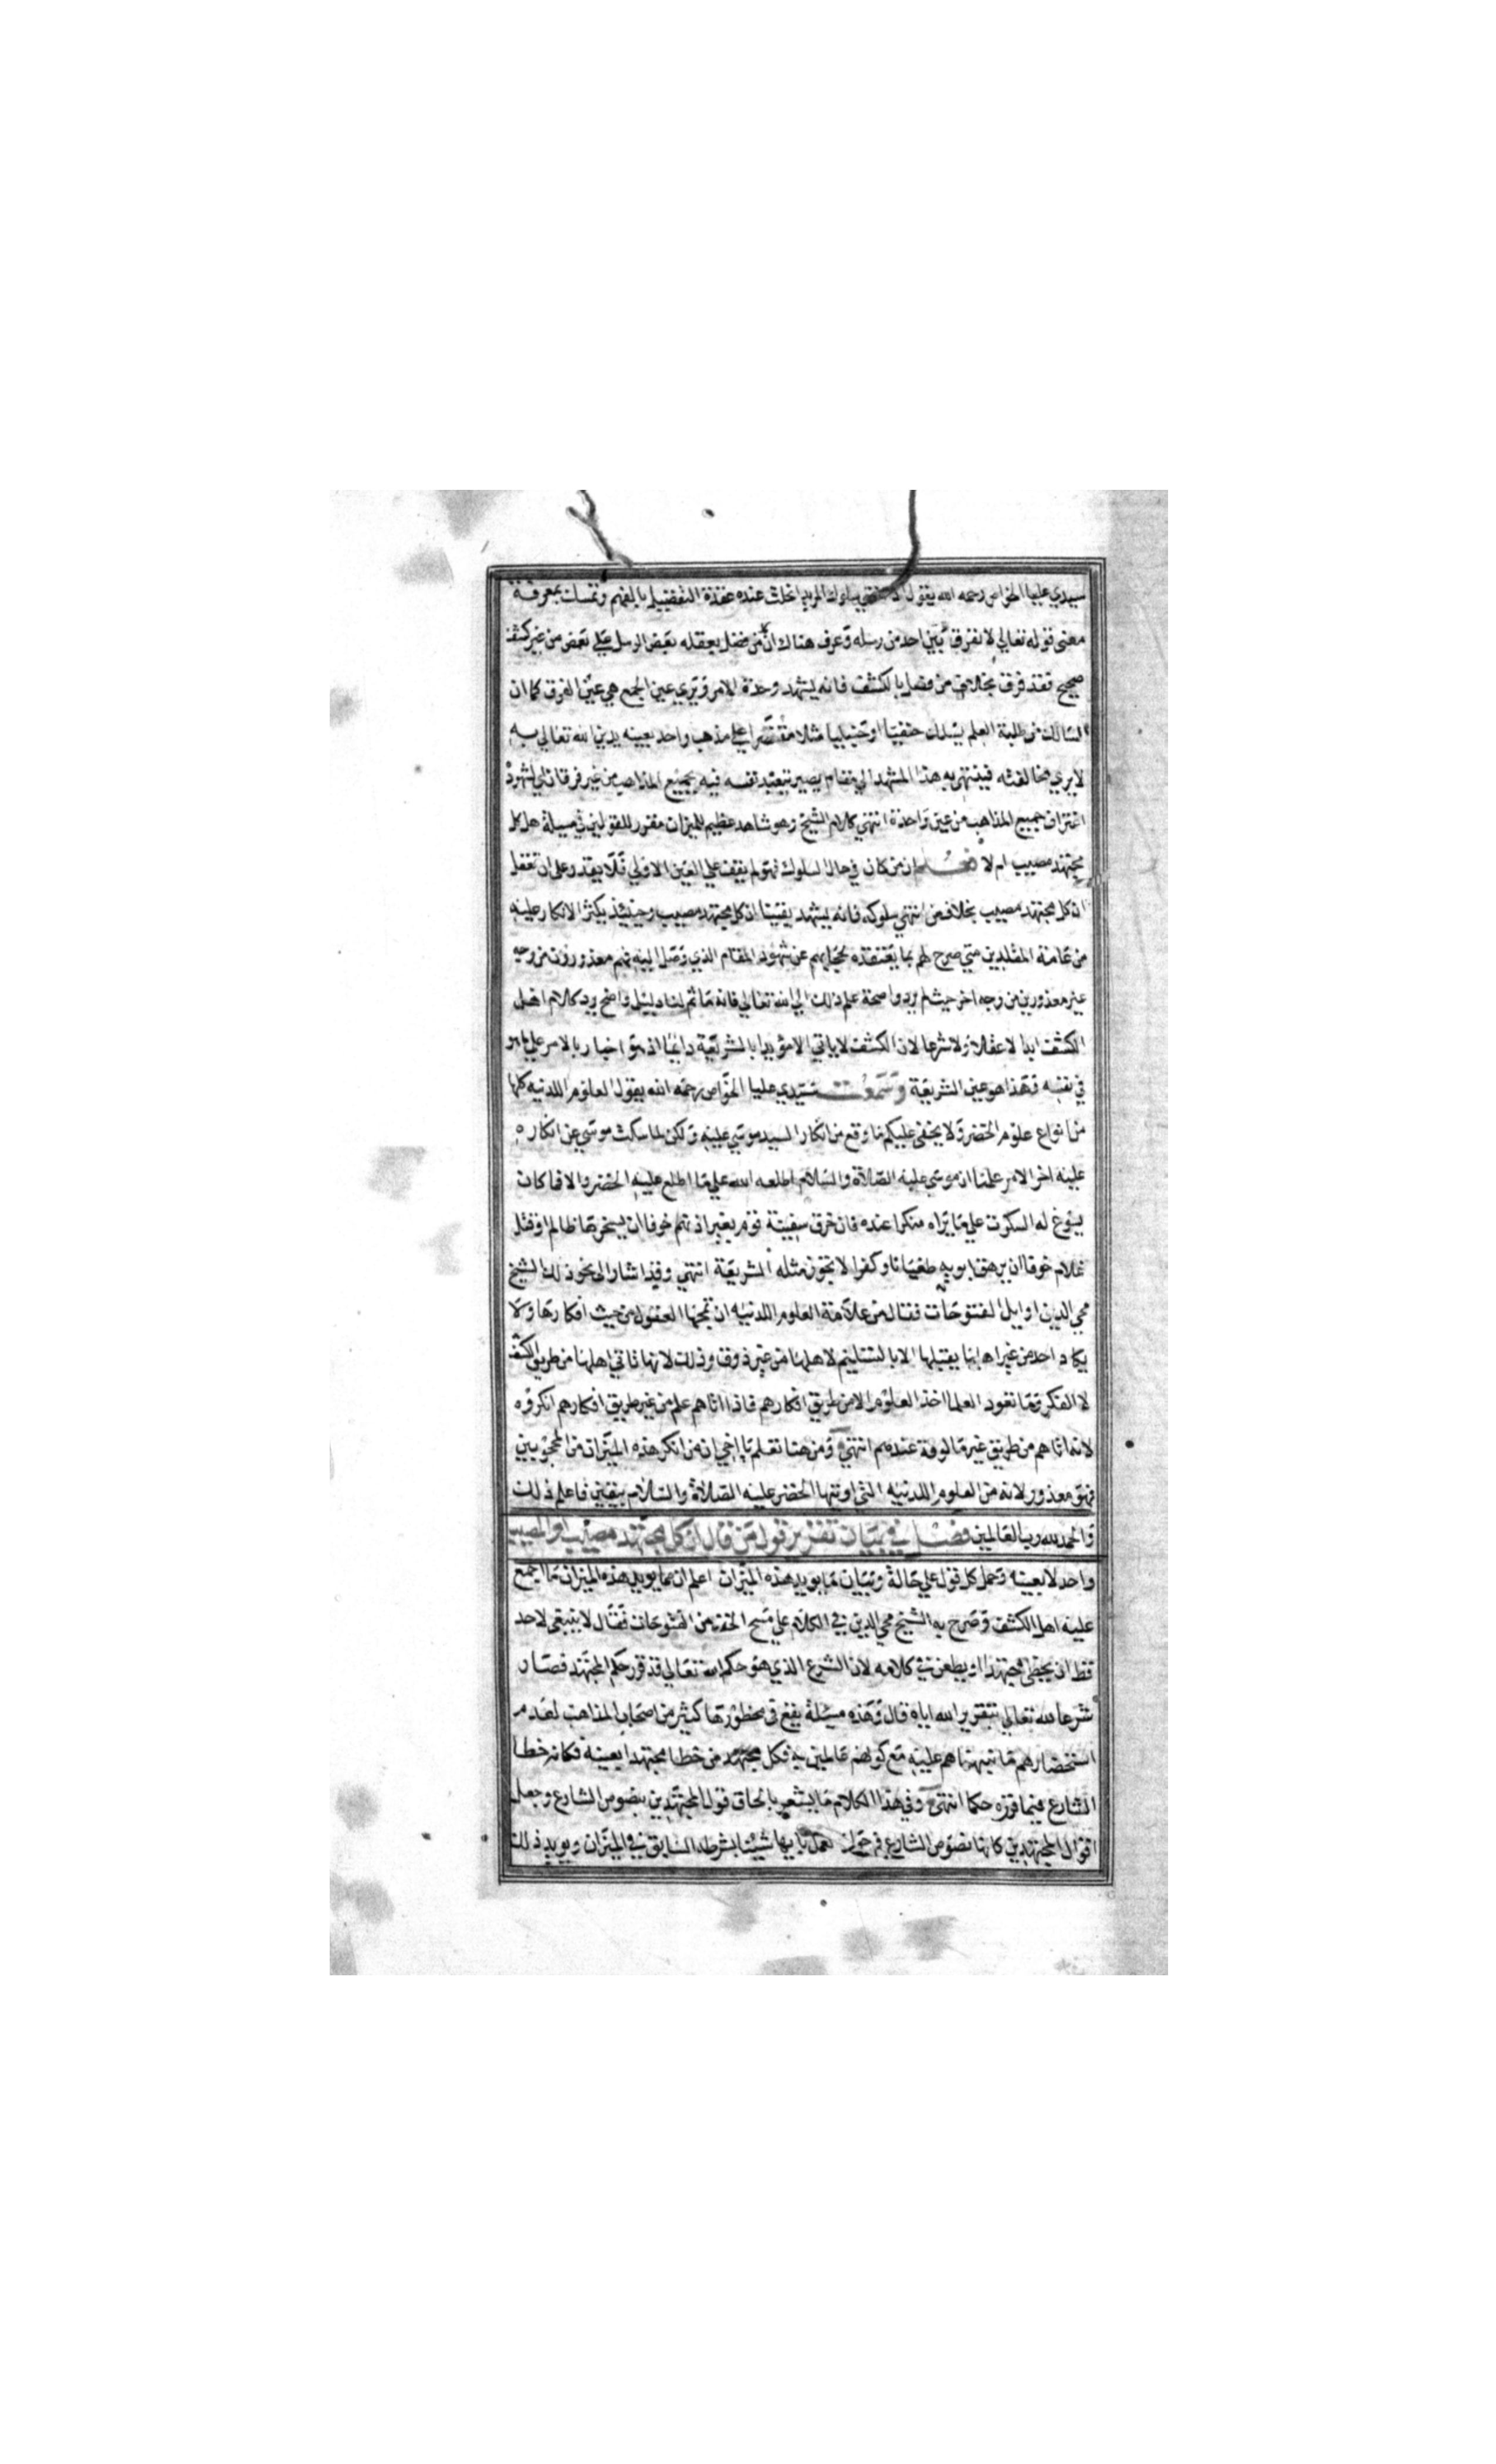 سيدي عليا الخواص رحمه الله يقول اذا انتهي سلوك المريد انحلت عنده عقدة التفضيل بالفهم وتمسك بمعرفة
معنى قوله تعالي لا نفرق بين احد من رسله وعرف هناك ان من فضل بعقله بعض الرسل على بعض من غير كشف
صحيح فقد فرق بخلاف من فضل بالكشف فانه يشهد وحدة الامر ويري عين الجمع هي عين الفرق كما ان
السالك من طلبة العلم يسلك حنفيا او حنبليا مثلا مقتصرا على مذهب واحد بعينه يدين الله تعالي به
لا يري مخالفته فينتهي به هذا المشهد الي مقام يصير يتعبد نفسه فيه بجميع المذاهب من غير فرقان لشهود
اغتراف جميع المذاهب من عين واحدة انتهي كلام الشيخ وهو شاهد عظيم للميزان مقرر للقولين في مسيلة هل كل
مجتهد مصيب ام لا ان من كان في حال السلوك فهو لم يقف علي العين الاولي فلا يقدر علي ان يتعقل
ان كل مجتهد مصيب بخلاف من انتهي سلوكه فانه يشهد يقينا ان كل مجتهد مصيب وحينيذ يكثر الانكار عليه
من عامة المقلدين متي صرح لهم بما يعتقده لحجابهم عن شهود المقام الذي وصل اليه فهم معذورون من وجه
غير معذورين من وجه اخر حيث لم يردوا صحة علم ذلك الي الله تعالي فانه ما ثم لنا دليل واضح يرد كلام اهل
الكشف ابدا لا عقلا ولا شرعا لان الكشف لا ياتي الا مؤيدا بالشريعة دايما اذ هو اخبار بالامر علي ما هو
في نفسه وهذا هو عين الشريعة وسمعت سيدي عليا الخواص رحمه الله يقول العلوم اللدنيه كلها
من انواع علوم الخضر ولا يخفى عليكم ما وقع من انكار السيد موسي عليه ولكن لما سكت موسي عن انكاره
عليه اخر الامر علمنا ان موسي عليه الصلاة والسلام اطلعه الله علي ما اطلع عليه الخضر والا فما كان
يسوغ له السكوت علي ما يراه منكرا عنده فان خرق سفينة قوم بغير اذنهم خوفا ان يسخرها ظالم او قتل
غلام خوفا ان يرهق ابويه طغيانا وكفرا لا تجوز مثله الشريعة انتهي وقد اشار الى نحو ذلك الشيخ
محي الدين اوايل الفتوحات فقال من علامة العلوم اللدنيه ان تمجها العقول من حيث افكارها ولا
يكاد احد من غير اهلها يقبلها الا بالتسليم لاهلها من غير ذوق وذلك لانها تاتي اهلها من طريق الكشف
لا الفكر وما تعود العلما اخذ العلوم الا من طريق افكارهم فاذا اتاهم علم من غير طريق افكارهم انكروه
لانه اتاهم من طريق غير مالوفة عندهم انتهي ومن هنا تعلم يا اخي ان من انكر هذه الميزان من المحجوبين
فهو معذور لانه من العلوم اللدنيه التي اوتيها الخضر عليه الصلاة والسلام بيقين فاعلم ذلك
والحمد لله رب العالمين فصل في بيان تقرير قول من قال ان كل مجتهد مصيب او المصيب
واحد لا بعينه وحمل كل قول علي حالة وبيان ما يويد هذه الميزان اعلم ان مما يويد هذه الميزان ما اجمع
عليه اهل الكشف وصرح به الشيخ محي الدين في الكلام علي مسح الخف من الفتوحات فقال لا ينبغي لاحد
قط ان يخطئ مجتهدا او يطعن في كلامه لان الشرع الذي هو حكم الله تعالي قد قرر حكم المجتهد فصار
شرعا لله تعالي بتقرير الله اياه قال وهذه مسيلة يقع في محظورها كثير من اصحاب المذاهب لعدم
استحضارهم ما نبهناهم عليه مع كونهم عالمين به فكل مجتهد من خطا مجتهدا بعينه فكانه خطا
الشارع فيما قرره حكما انتهي وفي هذا الكلام ما يشعر بالحاق قول المجتهدين بنصوص الشارع وجعل
اقوال المجتهدين كانها نصوص الشارع في جواز العمل بايها شينا بشرطه السابق في الميزان ويويد ذلك